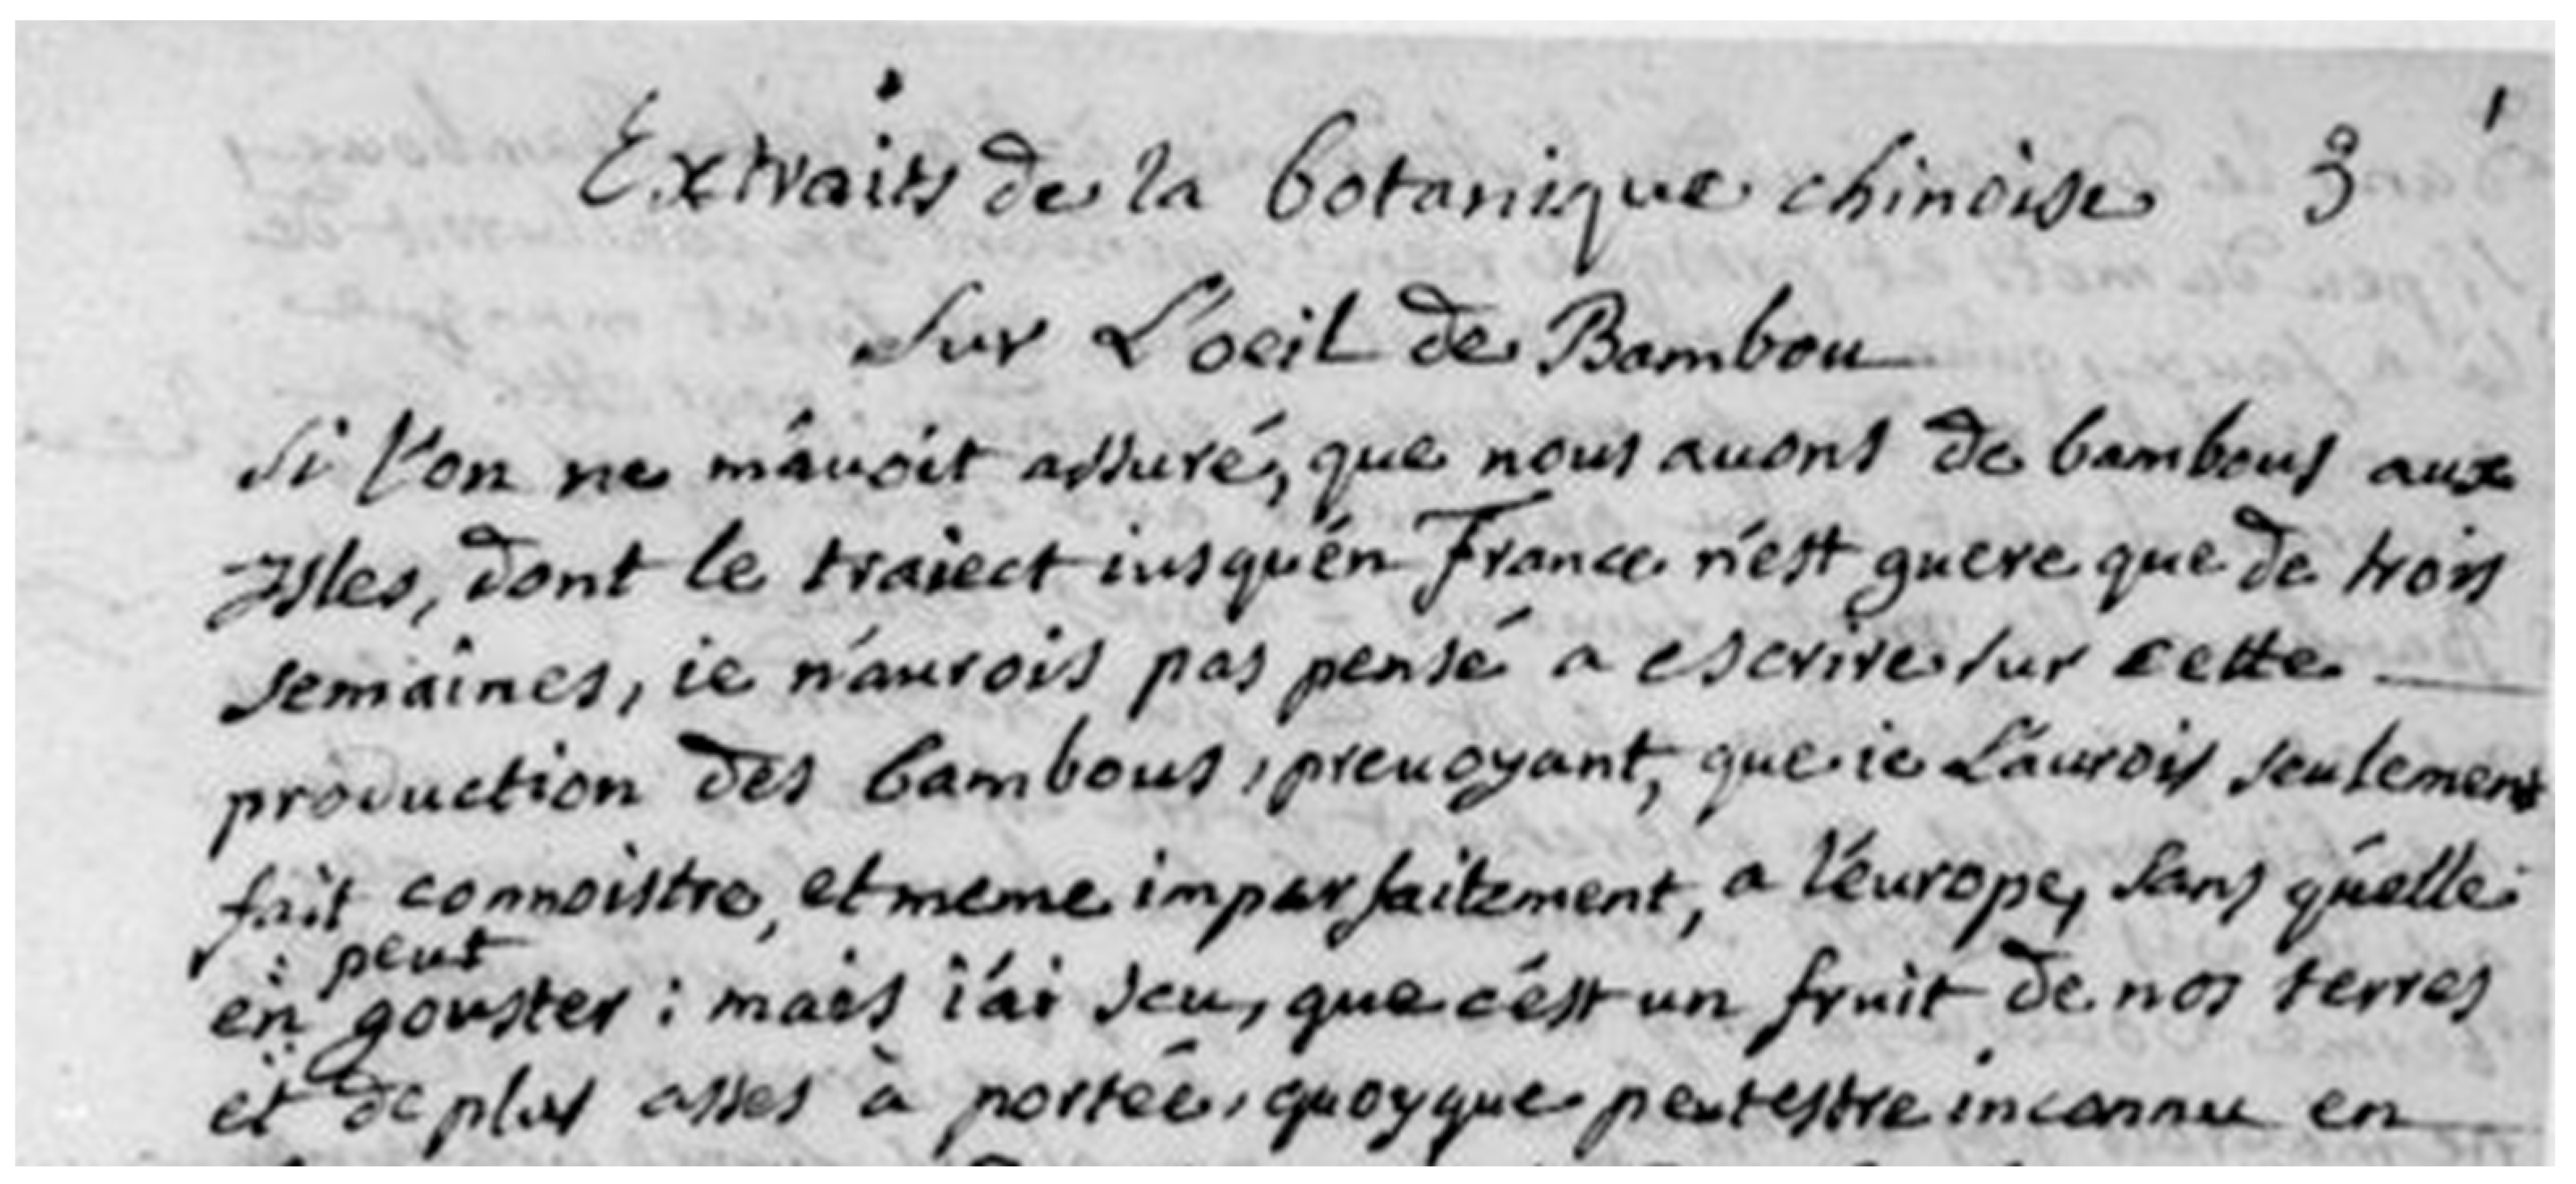 1
Extraits de la botanique chinoise 3
Sur L'oeil de Bambou
Si l'on ne m'auoit assuré, que nous auons de bambous aux
Isles, dont le traiect iusqu'en France n'est guere que de trois
semaines, ie n'aurois pas pensé a escrire sur cette
production des bambous, preuoyant, que ie L'aurois seulement
fait connoistre, et meme imparfaitement, a l'europe, sans qu'elle
peut
en gouster : mais i'ai scu, que c'est un fruit de nos terres
et de plus asses à portée, quoyque peutestre inconnu en